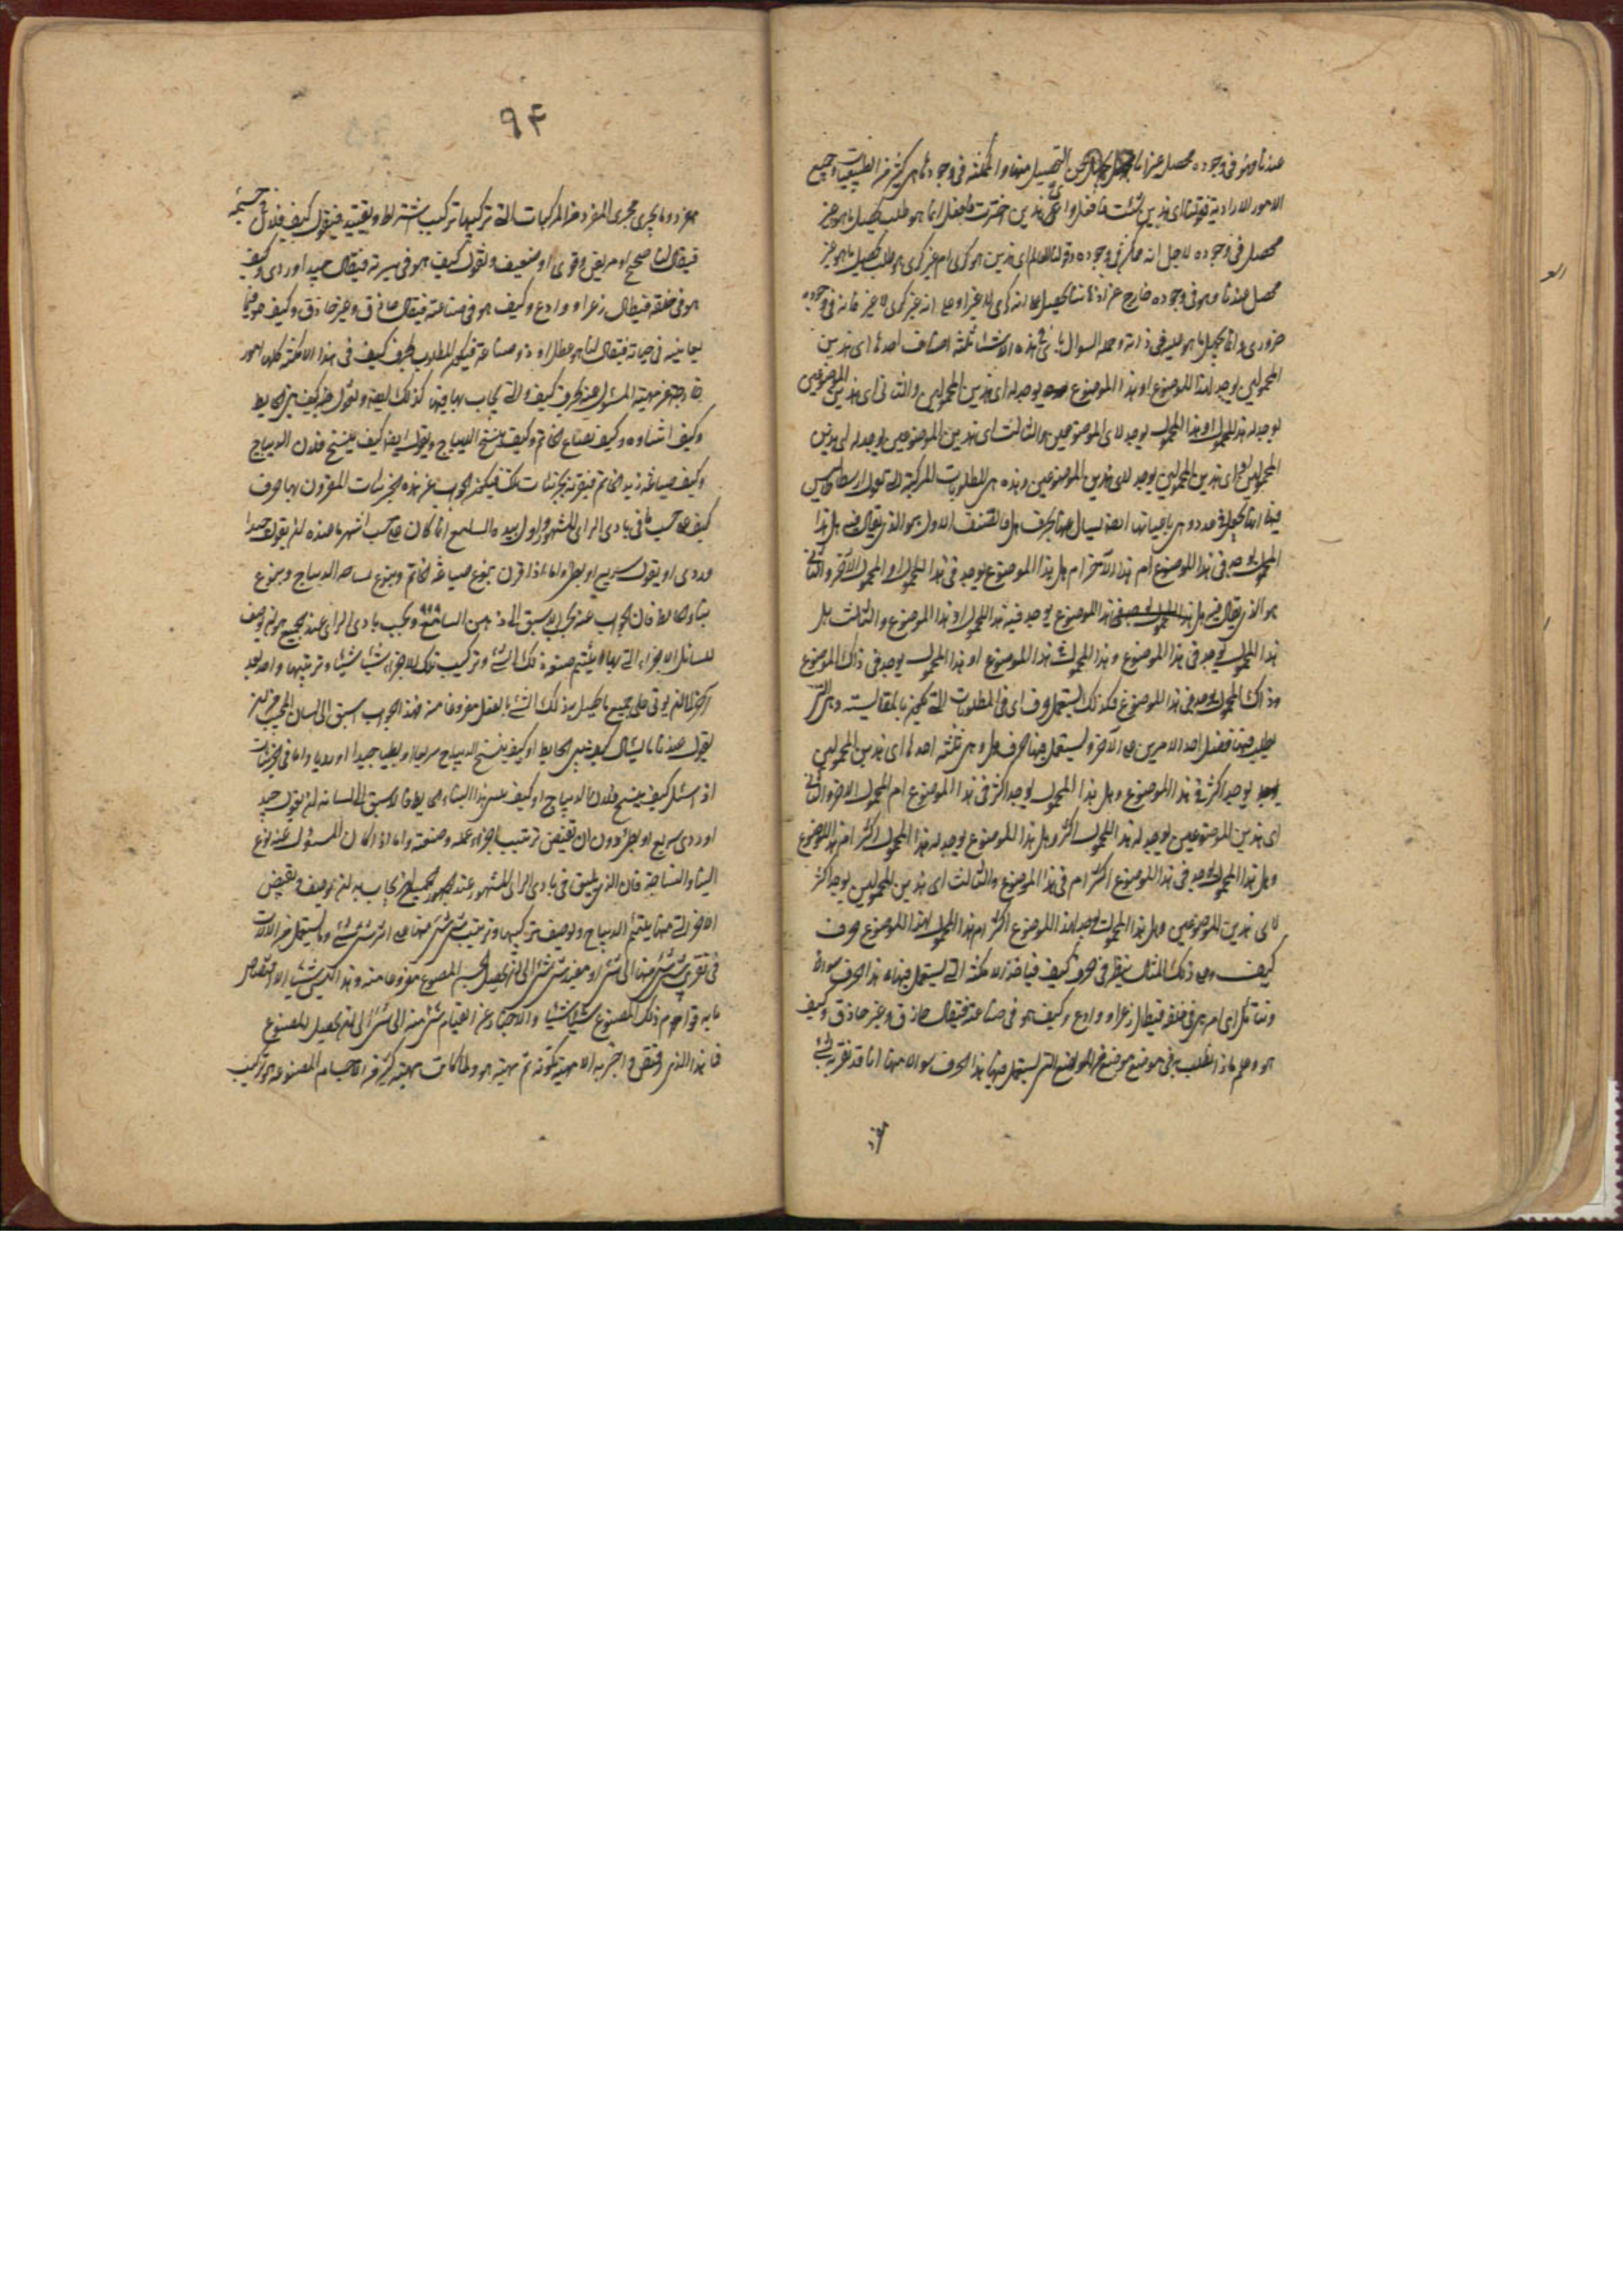 عندنا وهو في وجوده محصل عن التحصيل منها والممكنة في وجودها هي كثير من الطبيعيات وجميع
الامور الارادية فقولنا اي هذين شئت فافعل وعلى اي هذين اخترت فافعل انما هو طلب تحصيل ما هو غير
محصل في وجوده لاجل انه ممكن في وجوده وقولنا العالم اي هذين هو كري ام غير كري هو طلب تحصيل ما هو غير
محصل عندنا وهو في وجوده خارج عن اذهاننا محصل على انه كري لا غير او على انه غير كري لا غير فانه في وجوده
ضروري وانما نجهل ما هو عليه في ذاته وجملة السوال باي في هذه الاشياء ثلثة اصناف احدها اي هذين
المحمولين يوجد لهذا الموضوع او هذا الموضوع يوجد له اي هذين المحمولين والثاني اي هذين الموضوعين
يوجد له هذا المحمول او هذا المحمول يوجد لاي الموضوعين والثالث اي هذين الموضوعين يوجد له اي هذين
المحمولين او اي هذين المحمولين يوجد لاي هذين الموضوعين وهذه هي المطلوبات المركبة التي يقول ارسطاطاليس
فيها انها تجعل في عدد وهي باعيانها ايضا يسال عنها بحرف هل فالصنف الاول هو الذي يقال فيه هل هذا
المحمول يوجد في هذا الموضوع ام هذا الآخر ام هل هذا الموضوع يوجد في هذا المحمول او المحمول الآخر والثاني
هو الذي يقال فيه هل هذا الموضوع يوجد فيه هذا المحمول او هذا الموضوع والثالث هل
هذا المحمول يوجد في هذا الموضوع وهذا المحمول هذا الموضوع او هذا المحمول يوجد في ذاك الموضوع
وذاك المحمول يوجد في هذا الموضوع فكذلك يستعمل حرف اي في المطلوبات التي تكون بالمقايسة وهي التي
يطلب فيها فضل احد الامرين على الآخر ويستعمل فيها حرف هل وهي ثلثة احدها اي هذين المحمولين
يوجد اكثر في هذا الموضوع وهل هذا المحمول يوجد اكثر في هذا الموضوع ام المحمول الآخر والثاني
اي هذين الموضوعين يوجد له هذا المحمول اكثر وهل هذا الموضوع يوجد له هذا المحمول اكثر ام هذا الموضوع
وهل هذا المحمول يوجد في هذا الموضوع اكثر ام في هذا الموضوع والثالث اي هذين المحمولين يوجد اكثر
لاي هذين الموضوعين وهل هذا المحمول يوجد لهذا الموضوع اكثر ام هذا المحمول لهذا الموضوع حرف
كيف وعلى ذلك المثال ننظر في حرف كيف فناخذ الامكنة التي يستعمل فيها هذا الحرف سوالا
ونتامل اي امر هي في خلقه فيقال زعر او وادع وكيف هو في صناعته فيقال حاذق وغير حاذق وكيف
هو وعلم ماذا يطلب به في موضع موضع من المواضع التي يستعمل فيها هذا الحرف سوالا منها انا قد نقرنه بشئ
مفرد
٩٤
مفرد وما يجري مجرى المفرد من المركبات التي تركيبها تركيب اشتراط وتقييد فنقول كيف فلان في جسمه
فيقال لنا صحيح او مريض وقوي او ضعيف ونقول كيف هو في سيرته فيقال جيد او ردي وكيف
هو في خلقه فيقال زعر او وادع وكيف هو في صناعته فيقال حاذق او غير حاذق وكيف هو فيما
يعانيه في حياته فيقال لنا هو عطل او ذو صناعة فيكون المطلوب بحرف كيف في هذه الامكنة كلها امور
خارجة عن مهية المسئول عنه بحرف كيف والتي يجاب بها فيها كذلك ايضا ونقول كيف بني الحايط
وكيف اشاده وكيف صناع الخاتم وكيف ينسج الديباج ونقول ايضا كيف ينسج فلان الديباج
وكيف صياغة زيد الخاتم فنقرنه بجزئيات تلك فيكون الجواب عن هذه الجزئيات المقرون بها حرف
كيف على حسب ما في بادي الراي المشهور واول بيد ما السامع انما كان على حسب اشهر ما عنده ان يقول جيدا
وردي او يقول سريع او بطئ واما اذا قرن بنوع صياغة الخاتم وبنوع نساجة الديباج وبنوع
بناء الحايط فان الجواب عنه بحرف يسبق الى ذهن السامع ونجيب بادي الراي عند الجميع هو ان يوصف
للسائل الاجزاء التي بها تلتئم صنعة ذلك الشئ وتركيب تلك الاجزاء شيئا شيئا وترتيبها واحد بعد
آخر الى ان يوتى على جميع ما يحصل به ذلك الشئ بالفعل مفروغا منه فهذا الجواب اسبق الى لسان المجيب من ان
يقول عندنا ما يسال كيف بني الحايط او كيف ينسج الديباج سريعا او بطيا جيدا او رديا واما في جزئيات
اذا سئل كيف ينسج فلان الديباج او كيف يبني هذا البناء الحايط فالاسبق الى لسانه ان يقول جيد
او ردي سريع او بطئ دون ان تقتص ترتيب اجزاء عمله وصنعته واما اذا كان المسئول عنه نوع
البناء والنساجة فان الذي يليق في بادي الراي المشهور عند الجميع ان يجاب به ان توصف وتقتص
الاجزاء التي منها يلتئم الديباج وتوصف تركيبها وترتيب شئ شئ منها على اثر شئ شئ وما يستعمل من الآلات
في تقريب شئ شئ منها الى شئ او تبعيد شئ شئ الى ان يحصل الجسم المصنوع مفروغا منه وهذا ليس شيئا الا اقتصاص
ما به قوام ذلك المصنوع شيئا شيئا والاخبار عن انضمام شئ منه الى شئ الى ان يحصل المصنوع
فهذا الذي اقتص واخبر به الا مهية تكونه ثم مهيته هو ولما كانت مهية كثير من الاجسام المصنوعة هو تركيب